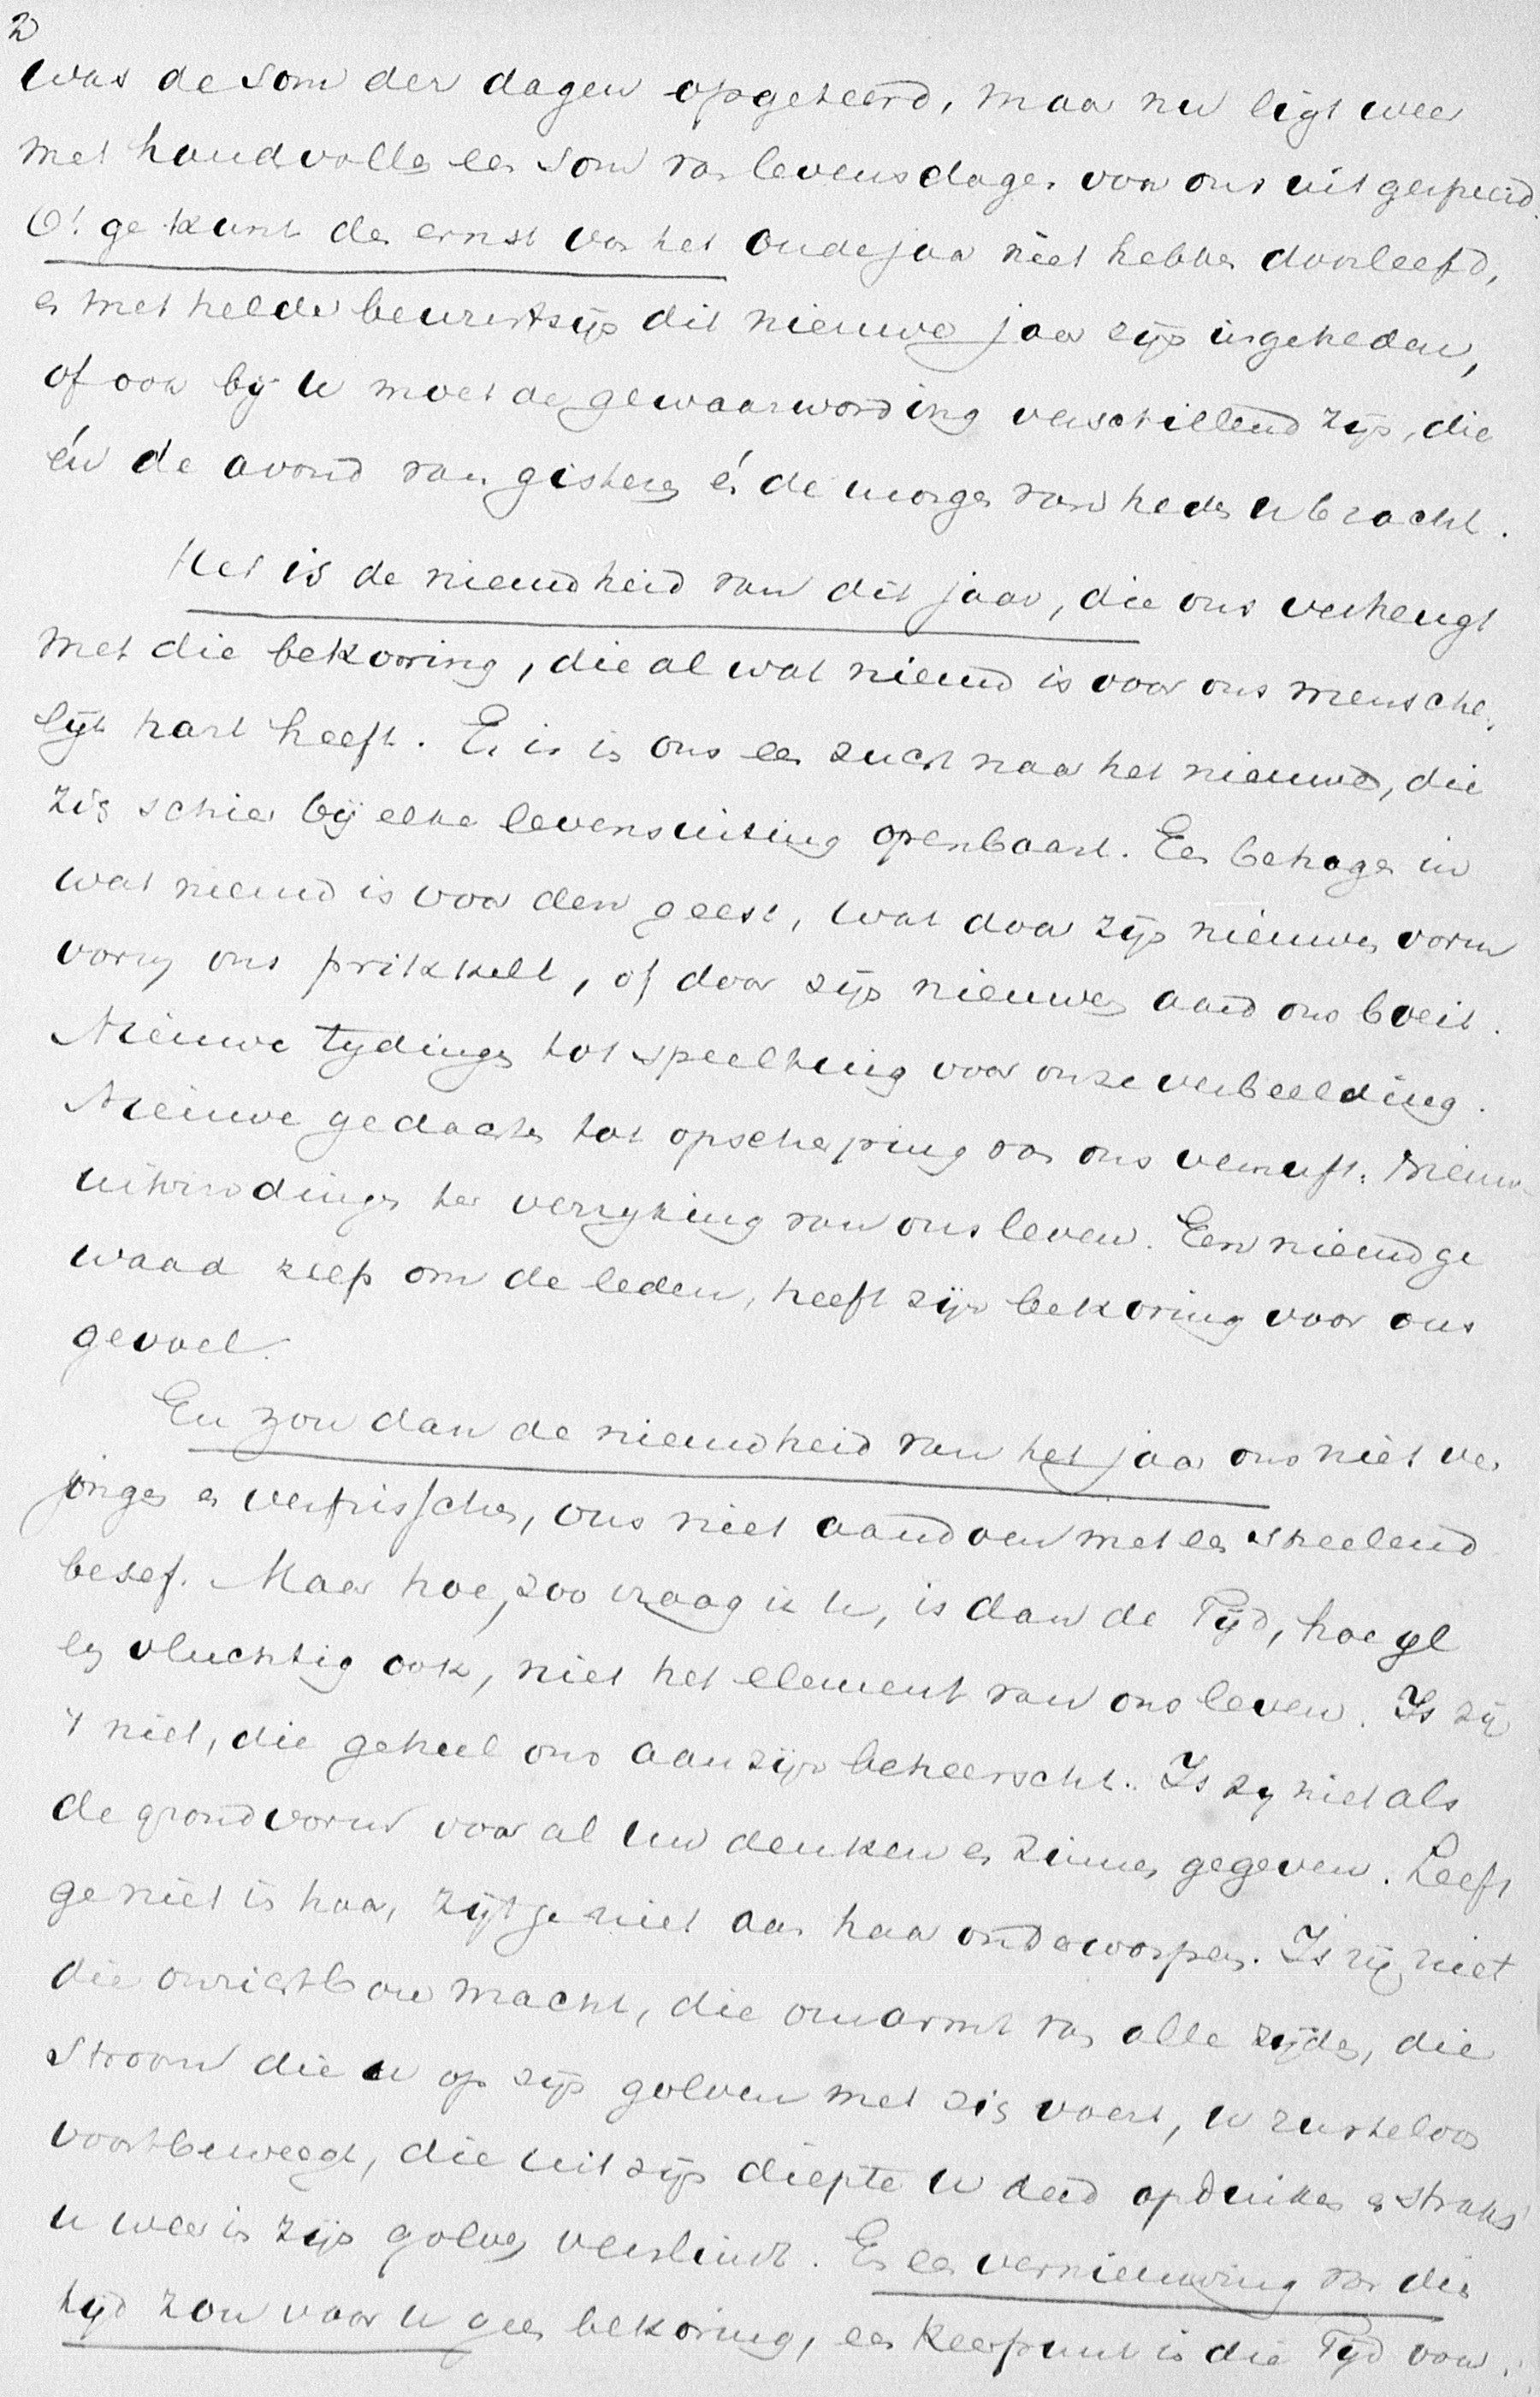 2
was de som der dagen opgeteerd, maar nu ligt weer
met handvolle een som van levensdagen voor ons uitgespreid.
O! ge kunt den ernst van het oudejaar niet hebben doorleefd,
en met helder bewustzijn dit nieuwe jaar zijn ingetreden,
of ook bij u moet de gewaarwording verschillend zijn, die
én de avond van gisteren én de morgen van heden u bracht.
Het is de nieuwheid van dit jaar, die ons verheugt
met die bekooring, die al wat nieuw is voor ons mensche-
lijk hart heeft. Er is in ons een zucht naar het nieuwe, die
zich schier bij elke levensuiting openbaart. Een behagen in
wat nieuw is voor den geest, wat door zijn nieuwen vorm
vorm ons prikkelt, of door zijn nieuwen aard ons boeit.
Nieuwe tydingen tot speeltuig voor onze verbeelding.
Nieuwe gedachten tot opscherping van ons vernuft. Nieuwe
uitvindingen ter verryking van ons leven. Een nieuw ge
waad zelfs om de leden, heeft zijn bekoring voor ons
gevoel.
En zou dan de nieuwheid van het jaar ons niet ver
jongen en verfrisschen, ons niet aandoen met een streelend
besef. Maar hoe, zoo vraag ik u, is dan de Tijd, hoe yl
en vluchtig ook, niet het element van ons leven. Is zij
't niet, die geheel ons aanzijn beheerscht. Is zy niet als
de grondvorm voor al uw denken en zinnen gegeven. Leeft
ge niet in haar, zijt ge niet aan haar onderworpen. Is zij niet
die onzichtbare macht, die omarmt van alle zijden, die
stroom die u op zijn golven met zich voert, u rusteloos
voortbeweegt, die uit zijn diepte u deed opduiken en straks
u weer in zijn golven verslindt. En een vernieuwing van die
tijd zou voor u geen bekoring, een keerpunt in die Tijd voor